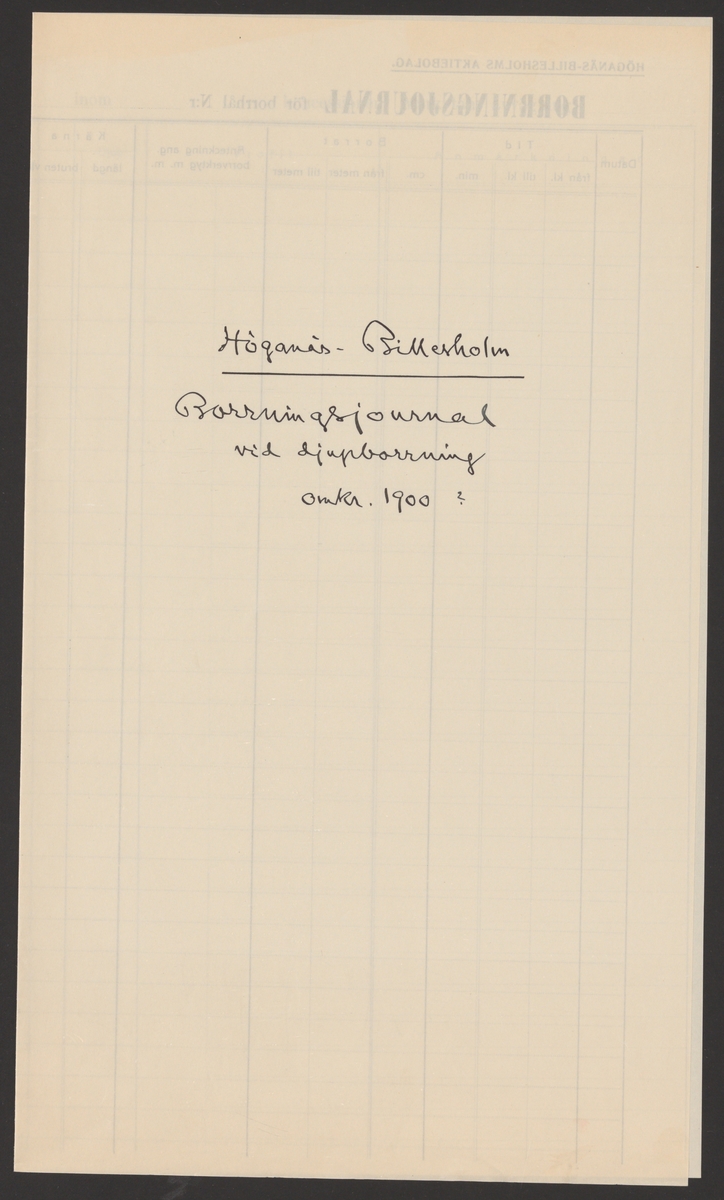 HÖGANÄS-BILLESHOLMS AKTIEBOLAG.
BORRNINGSJOURNAL för borrhål N:r
Datum
Tid
från kl.
till kl.
min.
Borrat
cm.
från meter
till meter
Anteckning ang.
borrverktyg m. m.
Kärna
längd
Höganäs - Billesholm
Borrningsjournal
vid djupborrning
omkr. 1900 ?